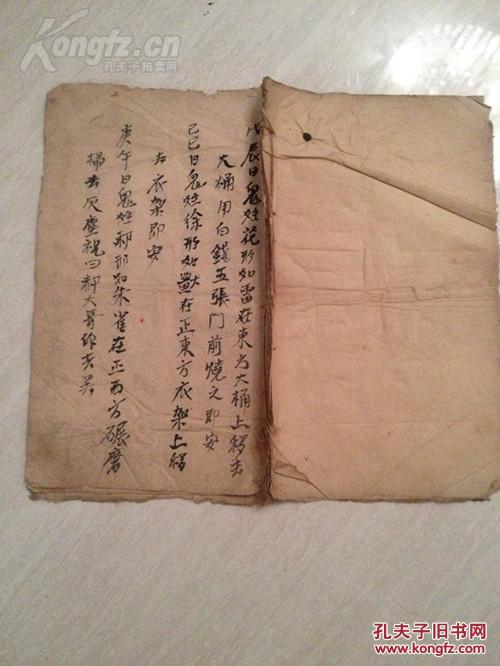 Kongfz.cn
孔夫子拍卖网
戊辰日鬼姓花形如雷在東方大桶上移去
大桶用白錢五張门前燒之即安
己巳日鬼姓徐形如獸在正東方衣架上移
去衣架即安
庚午日鬼姓 如朱雀在正西方碾磨
掃去灰塵祝曰 大哥 去吴
孔夫子旧书网
www.kongfz.com